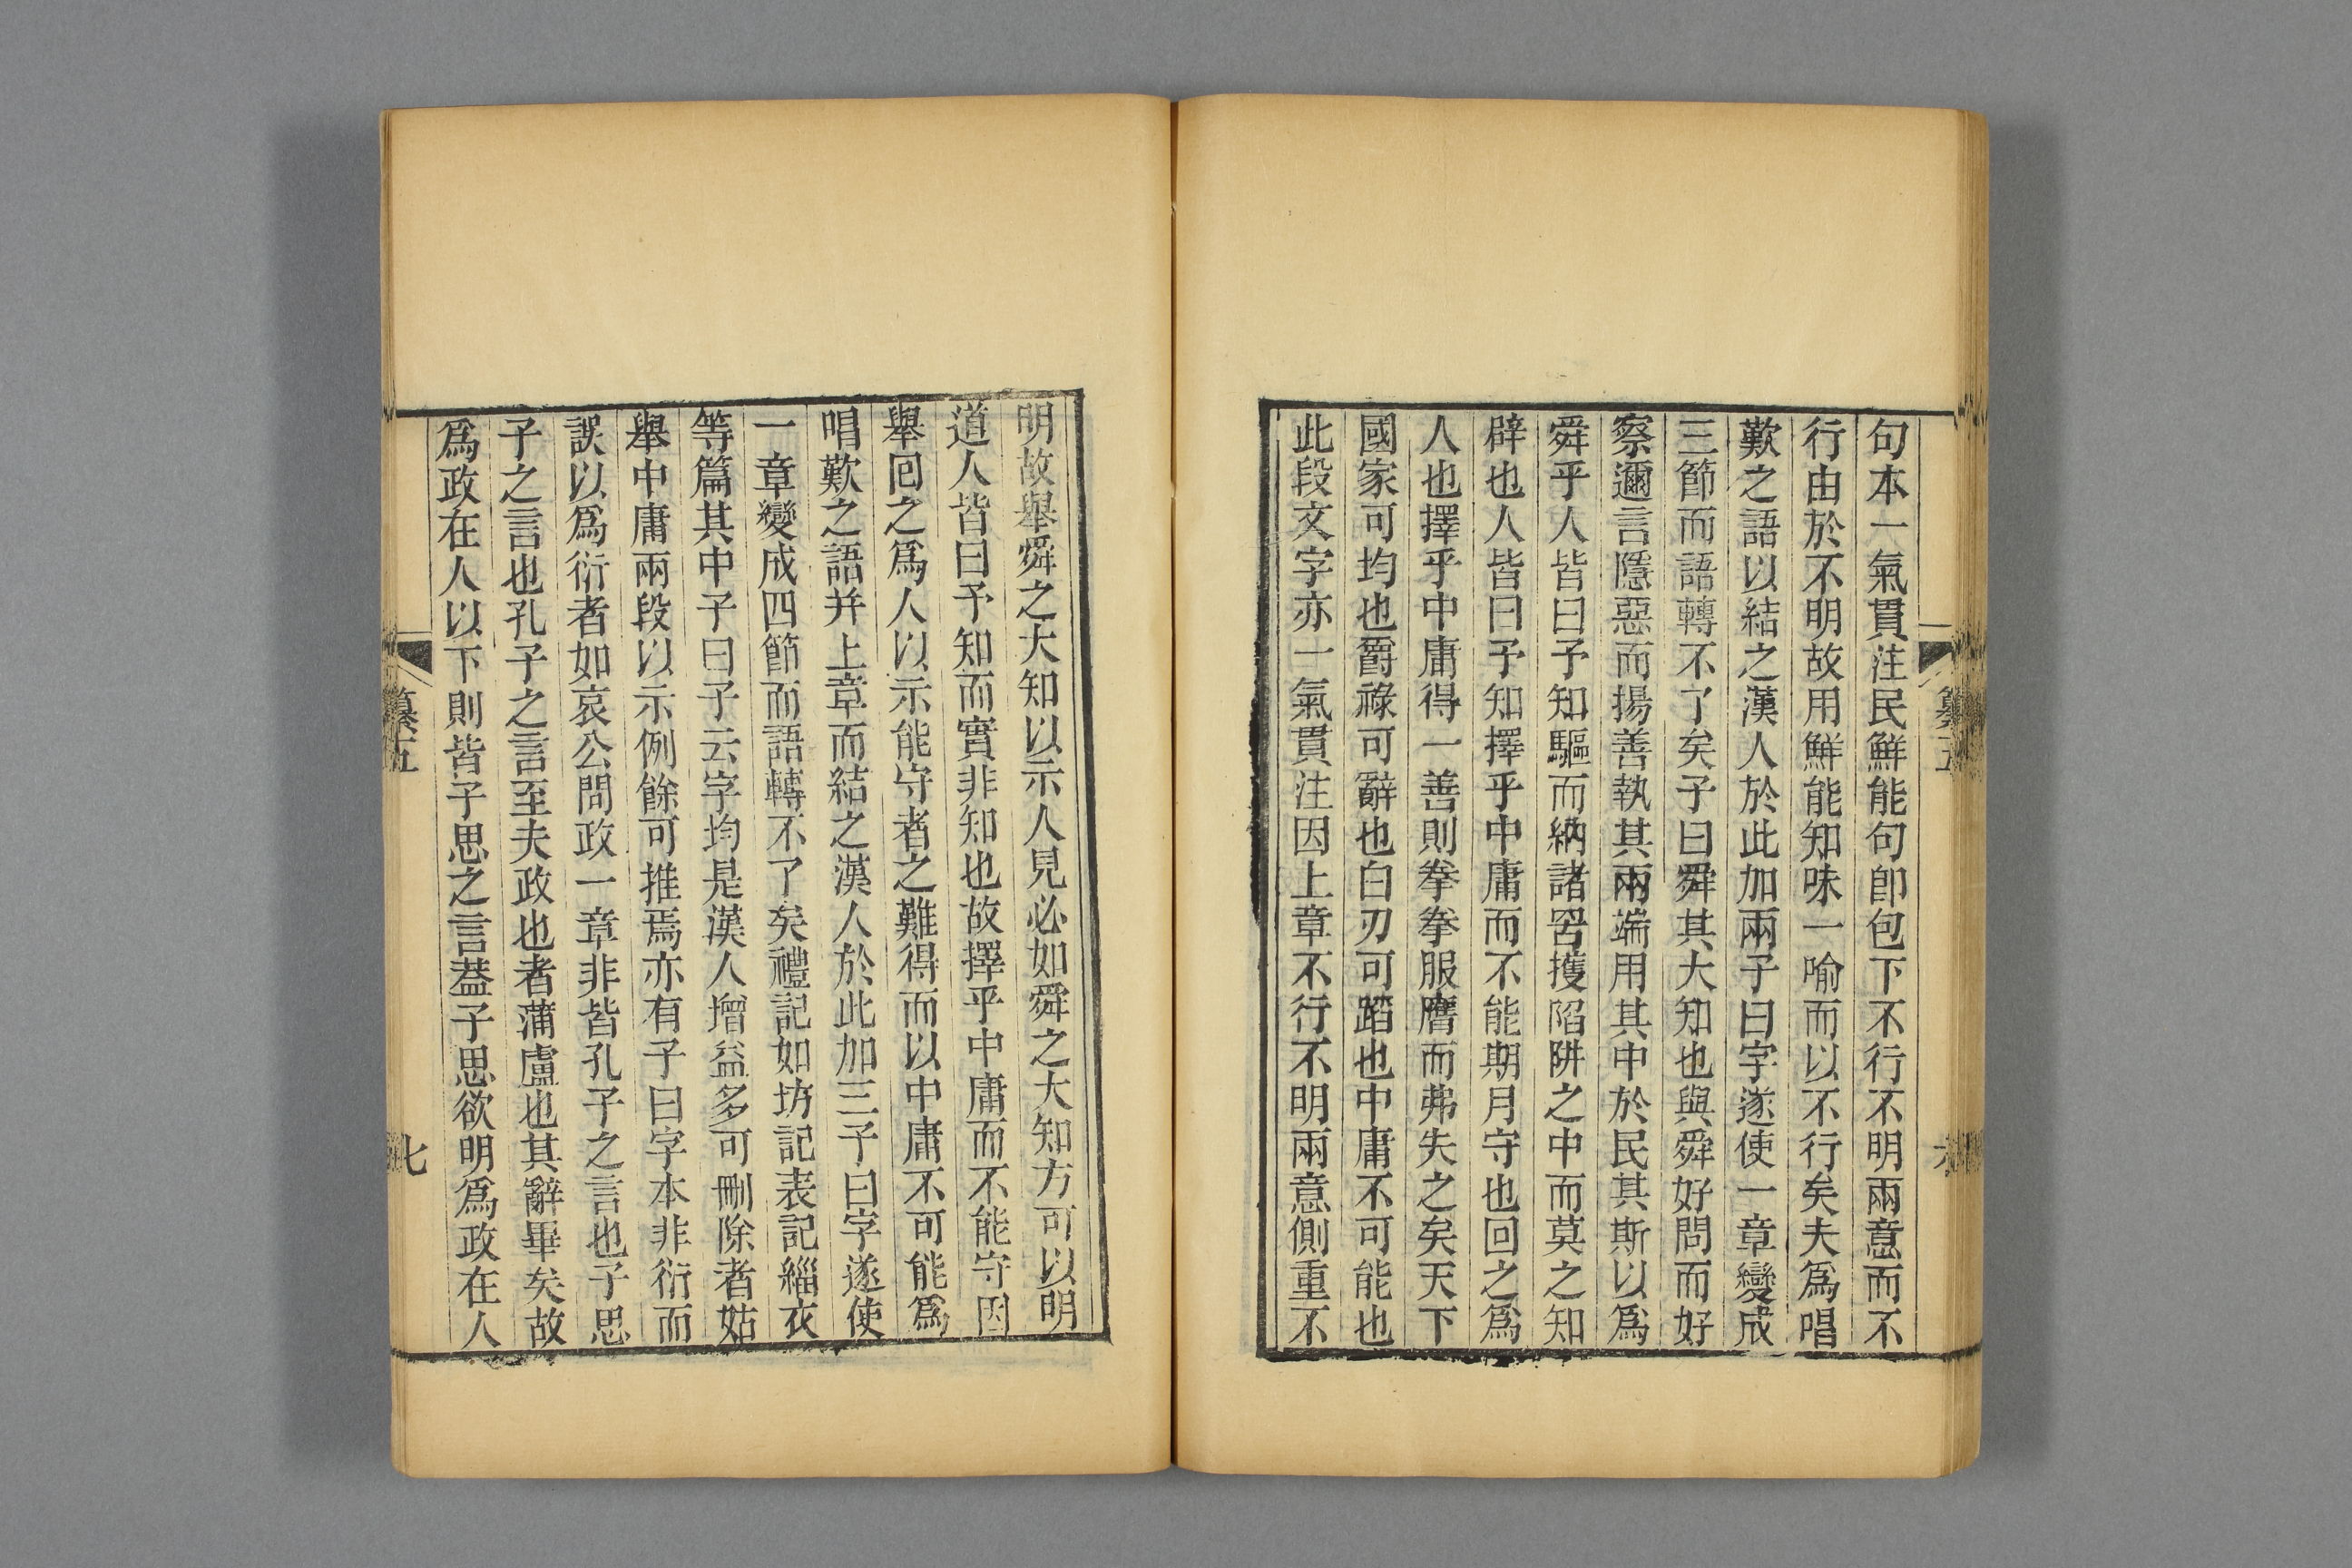 句本一氣貫注民鮮能句卽包下不行不明兩意而不
行由於不明故用鮮能知味一喻而以不行矣夫爲唱
歎之語以結之漢人於此加兩子曰字遂使一章變成
三節而語轉不了矣子曰舜其大知也與舜好問而好
察邇言隱惡而揚善執其兩端用其中於民其斯以爲
舜乎人皆曰予知驅而納諸罟擭陷阱之中而莫之知
辟也人皆曰予知擇乎中庸而不能期月守也回之爲
人也擇乎中庸得一善則拳拳服膺而弗失之矣天下
國家可均也爵祿可辭也白刃可蹈也中庸不可能也
此段文字亦一氣貫注因上章不行不明兩意側重不
明故舉舜之大知以示人見必如舜之大知方可以明
道人皆曰予知而實非知也故擇乎中庸而不能守因
舉回之爲人以示能守者之難得而以中庸不可能爲
唱歎之語并上章而結之漢人於此加三子曰字遂使
一章變成四節而語轉不了矣禮記如坊記表記緇衣
等篇其中子曰子云字均是漢人增益多可刪除者姑
舉中庸兩段以示例餘可推焉亦有子曰字本非衍而
誤以爲衍者如哀公問政一章非皆孔子之言也子思
子之言也孔子之言至夫政也者蒲盧也其辭畢矣故
爲政在人以下則皆子思之言葢子思欲明爲政在人
纂五
七